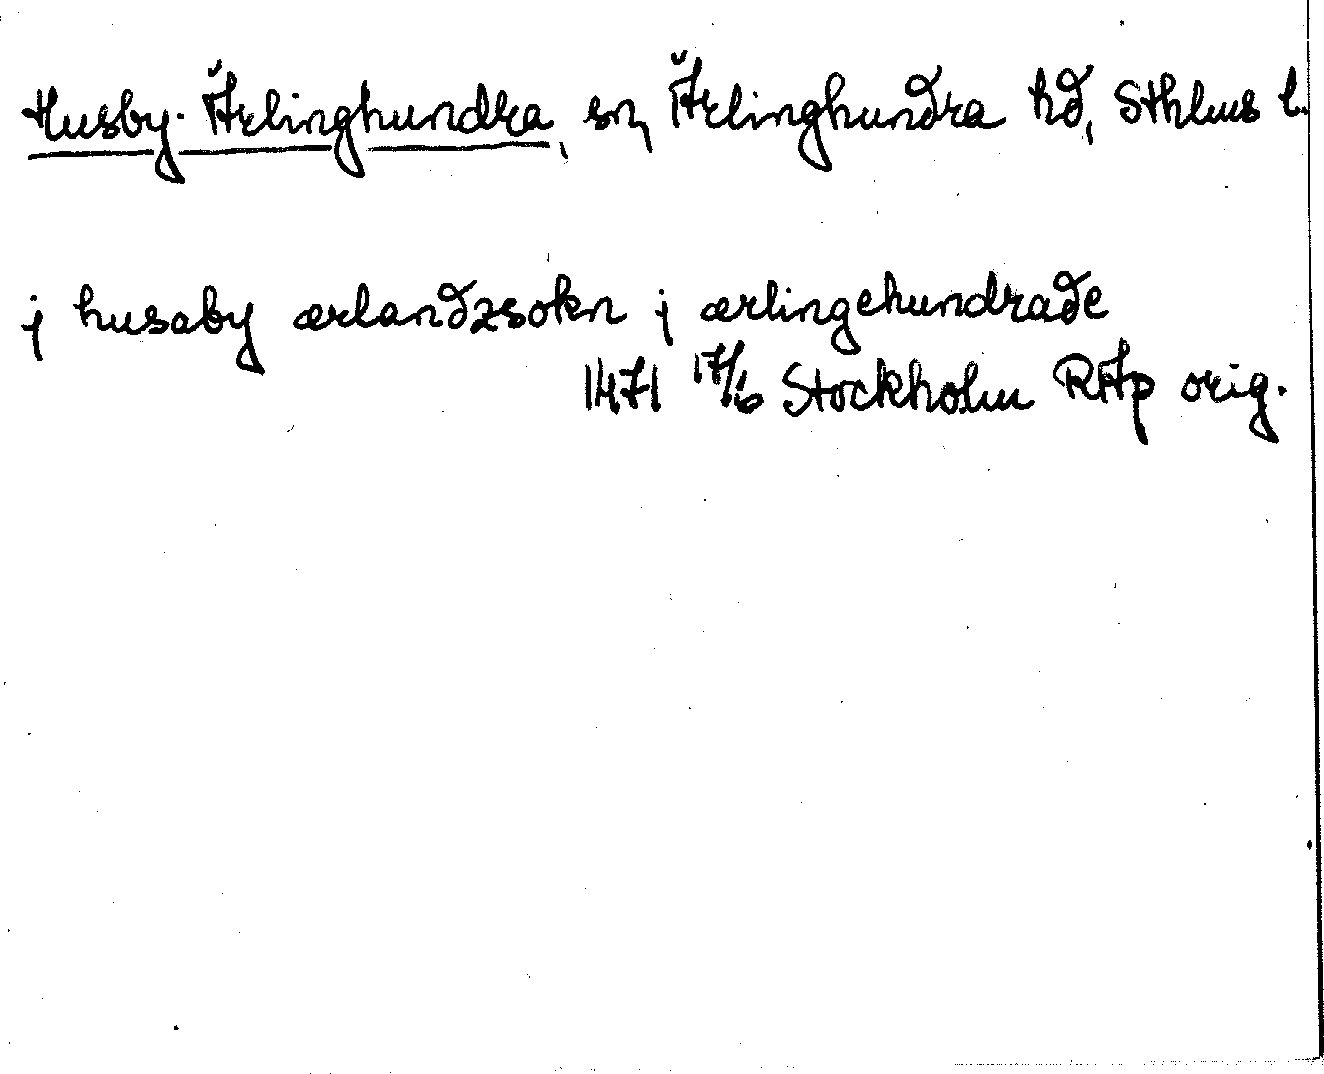 Husby-Ärlinghundra, sn, Ärlinghundra hd, Sthlms l.
j husaby ærlandzsokn j ærlingehundrade
1471 17/6 Stockholm RAp orig.